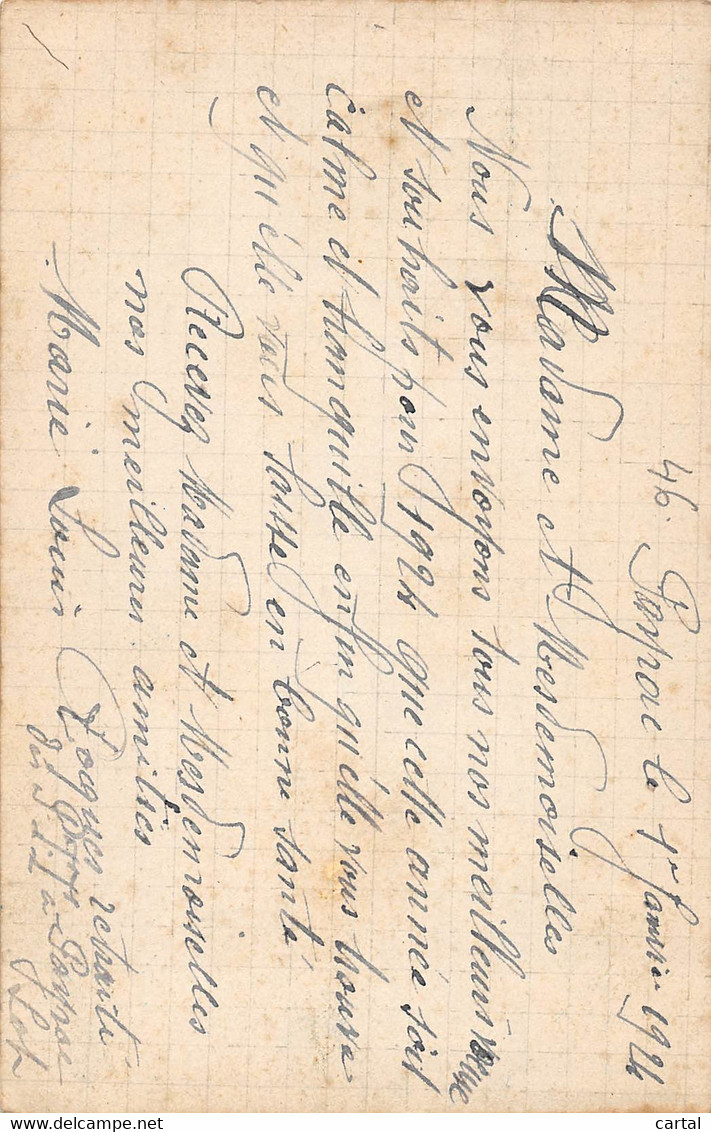 46. Payrac le 1er Janvier 1924
Madame et Mesdemoiselles
Nous vous envoyons tous nos meilleurs vœux
et souhaits pour 1924 que cette année soit
calme et tranquille enfin qu'elle vous trouve
et qu'elle vous laisse en bonne santé
Recevez Madame et Mesdemoiselles
nos meilleures amitiés
Marie Louis retraité
des P.T.T. à Payrac
Lot
cartal